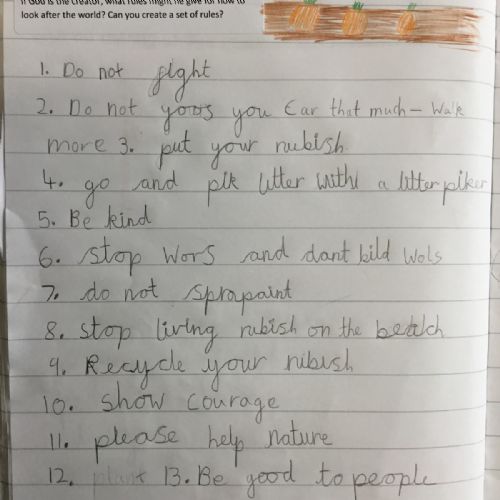 If God is the creator, what rules might he give for how to
look after the world? Can you create a set of rules?
1. Do not fight
2. Do not yoos you Car that much – Walk
more 3. put your rubish.
4. go and pik litter withe a litter piker
5. Be kind
6. stop wors and dant bild wols
7. do not sprapaint
8. stop living rubish on the beatch
9. Recycle your rubish
10. show courage
11. please help nature
12. plant 13. Be good to people